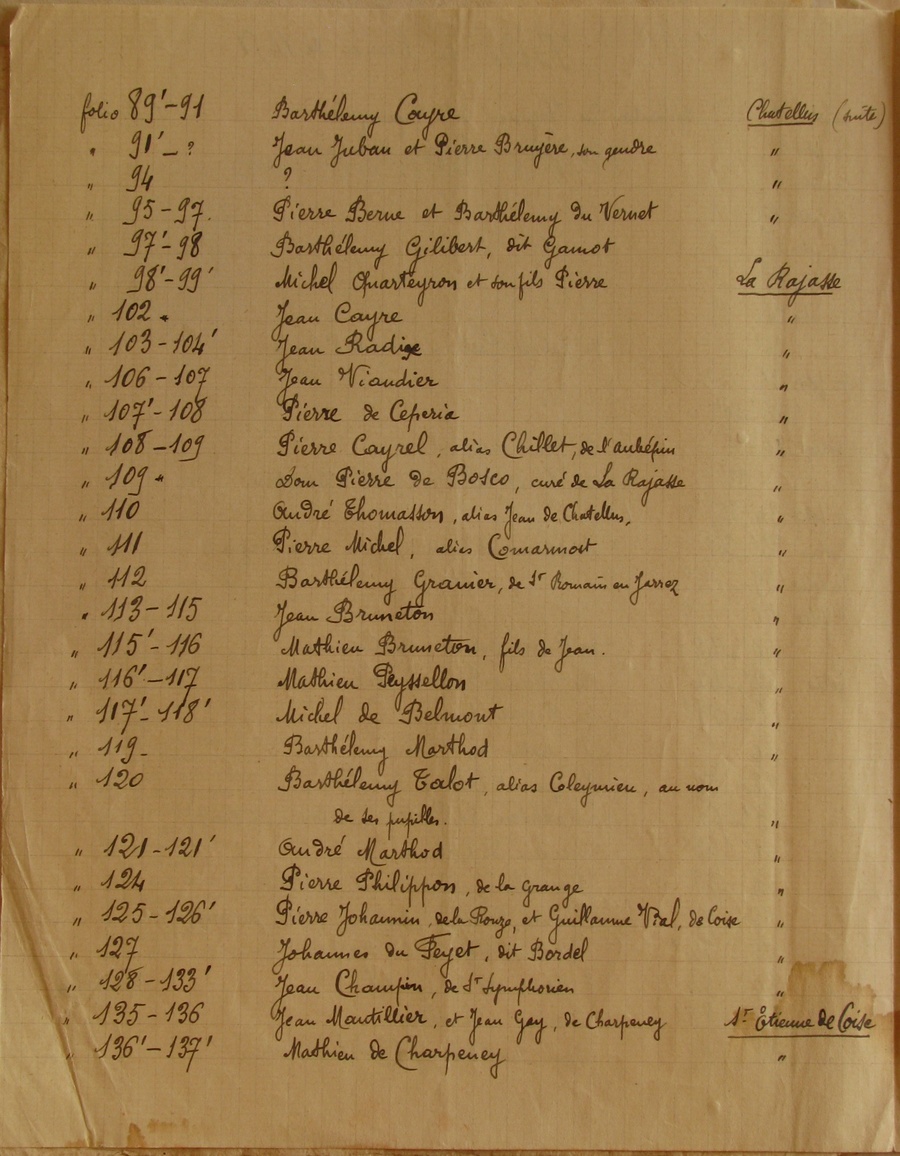 folio 89'-91 Barthélemy Cayre Chatellus (suite)
" 91'-? Jean Juban et Pierre Bruyère, son gendre "
" 94 ? "
" 95-97. Pierre Berne et Barthélemy du Vernet "
" 97'-98 Barthélemy Gilibert, dit Gamot
" 98'-99' Michel Quarteyron et son fils Pierre La Rajasse
" 102 Jean Cayre "
" 103-104' Jean Radise "
" 106-107 Jean Viandier "
" 107'-108 Pierre de Ceperia "
" 108-109 Pierre Cayrel, alias Chillet, de l'aubépin "
" 109 Dom Pierre de Bosco, curé de La Rajasse "
" 110 André Thomasson, alias Jean de Chatellus, "
" 111 Pierre Michel, alias Comarmont "
" 112 Barthélemy Granier, de St Romain en Jarrez "
" 113-115 Jean Bruneton "
" 115'-116 Mathieu Bruneton, fils de Jean. "
" 116'-117 Mathieu Peyssellon "
" 117'-118' Michel de Belmont "
" 119- Barthélemy Marthod "
" 120 Barthélemy Talot, alias Coleymieu, au nom
de ses pupilles. "
" 121-121' André Marthod "
" 124 Pierre Philippon, de la Grange "
" 125-126' Pierre Johannin, de la Ronze, et Guillaume Vial, de Coise "
" 127 Johannes du Feyet, dit Bordel "
" 128-133' Jean Champin, de St Symphorien "
" 135-136 Jean Mantillier, et Jean Gey, de Charpeney St Etienne de Coise
" 136'-137' Mathieu de Charpeney "